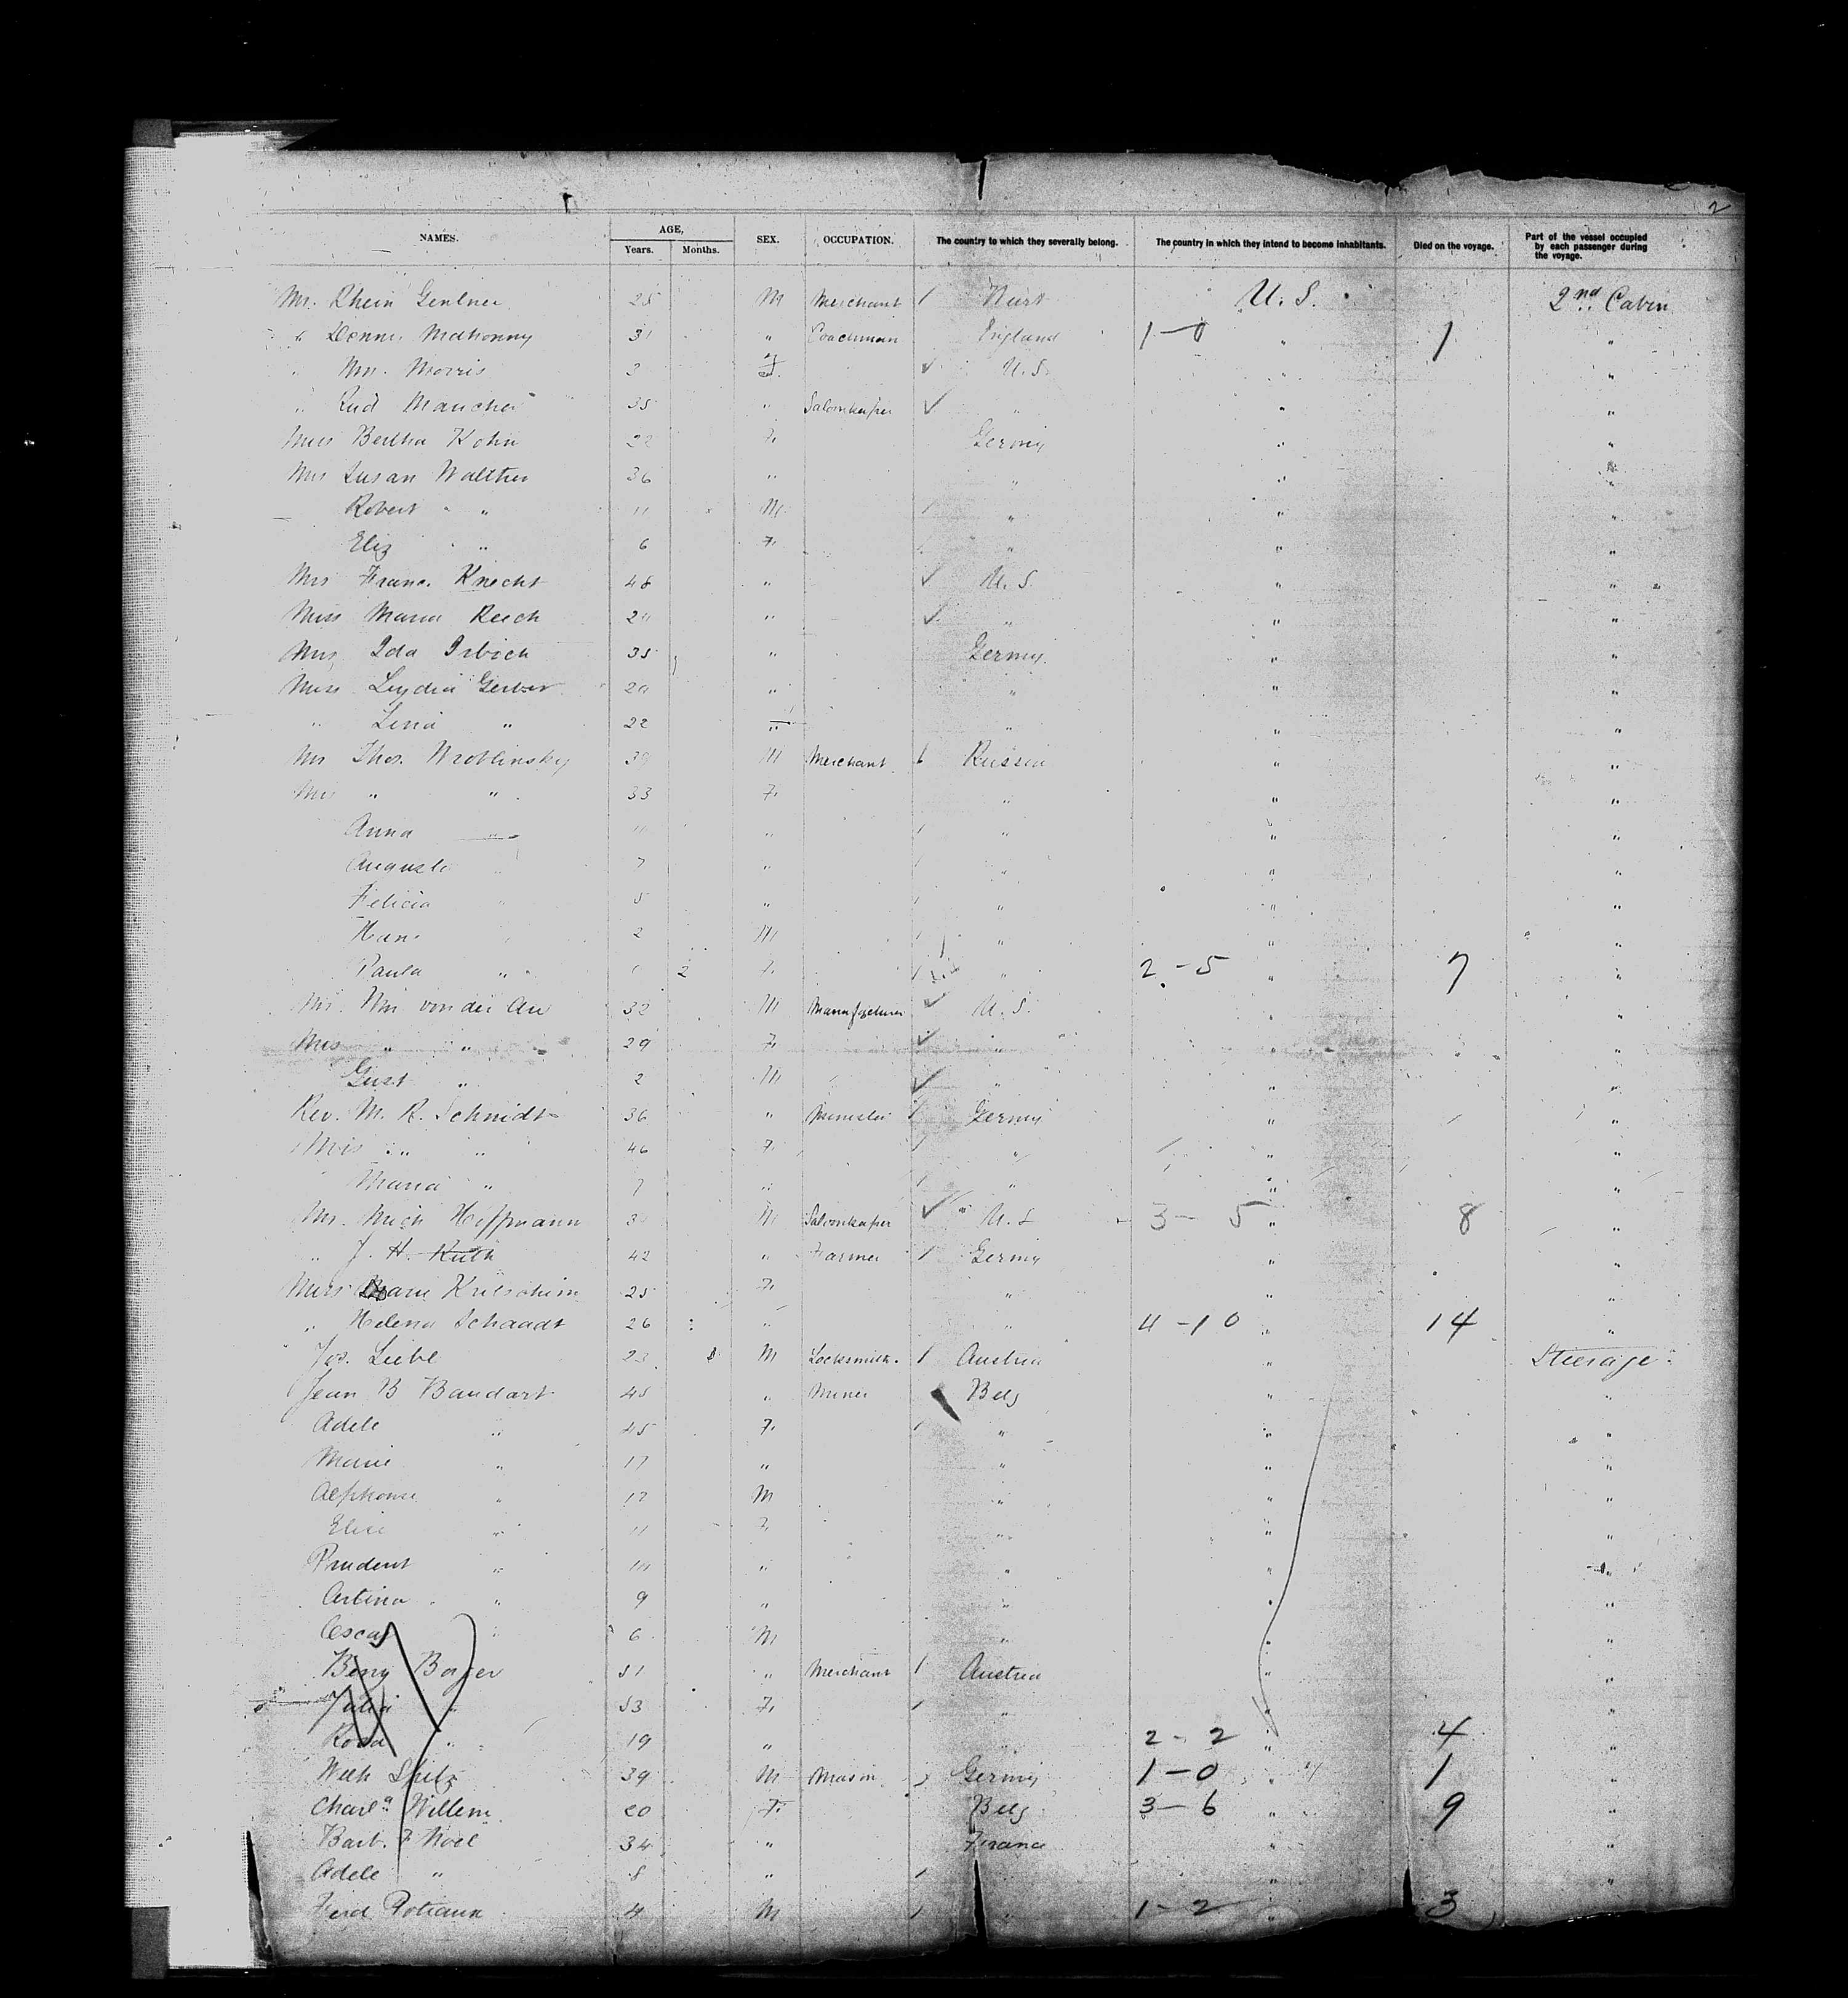 2
NAMES. AGE, Years. Months. SEX. OCCUPATION. The country to which they severally belong. The country in which they intend to become inhabitants. Died on the voyage. Part of the vessel occupied by each passenger during the voyage.
Mr. Rhein Gentner 25 M Merchant / U.S. 2nd Cabin
" Mahonny 31 " Coachman England 1-0 " 1 "
" Mrs. Morris 3 F. ✓ U.S. " "
" Rud Mancher 35 " Saloonkeeper ✓ " " "
Miss Bertha Kohn 22 F. Germy " "
Mrs Susan Walther 36 " " " "
Robert " " 11 M / " " "
Eliz " 6 F. / " " "
Mrs Franc. Knecht 48 " ✓ U.S. " "
Miss Maria Reich " ✓ " " "
Mrs Ida Irbich 35 " Germy. " "
Miss Lydia Gerber " " " "
" Lina " 22 " " " "
Mr Thos. Wroblinsky M Merchant Russia " "
Mrs " " 33 F. " " "
Anna " " / " " "
Auguste " 7 " / " " "
Felicia " 5 " / " " "
Hans " 2 M / " " "
Paula " 2 F. / " 2-5 " 7 "
Mr. Wm von der Au 32 M Manufacturer ✓ U.S. " "
Mrs " " 29 F. ✓ " " "
Gust " 2 M ✓ " " "
Rev. M. R. Schmidt 36 " Minister / Germy " "
Mrs " " 46 F. / " " "
Maria " 7 " / " " "
Mr. Mich Hoffmann M Saloonkeeper ✓ U.S 3-5 " 8 "
" J. H. Ruth 42 " Farmer / Germy " "
Miss Marie 25 F. " " "
" Helena Schaadt 26 " " 4-10 " 14 "
Jos. Liebl 23 M Locksmith. / Austria " Steerage.
Jean B Baudart 45 " Miner Belg " "
Adele " 45 F. / " " "
Marie " 17 " " " "
Alphonse " 12 M " " "
Elise " 11 F. " " "
Prudent " " " " "
Artina " 9 " " " "
Oscar " 6 M " " "
Benj Borger 51 " Merchant / Austria " "
Julia " 53 F. / " " "
Rosa " 19 " " 2-2 " 4 "
Wilh Spitz 39 M Mason Germy 1-0 " 1 "
Charla Willem 20 F. Belg 3-6 " 9 "
Barb. F Noel 34 " France " "
Adele " 8 " / " "
Ferd 4 M / " 1-2 " 3